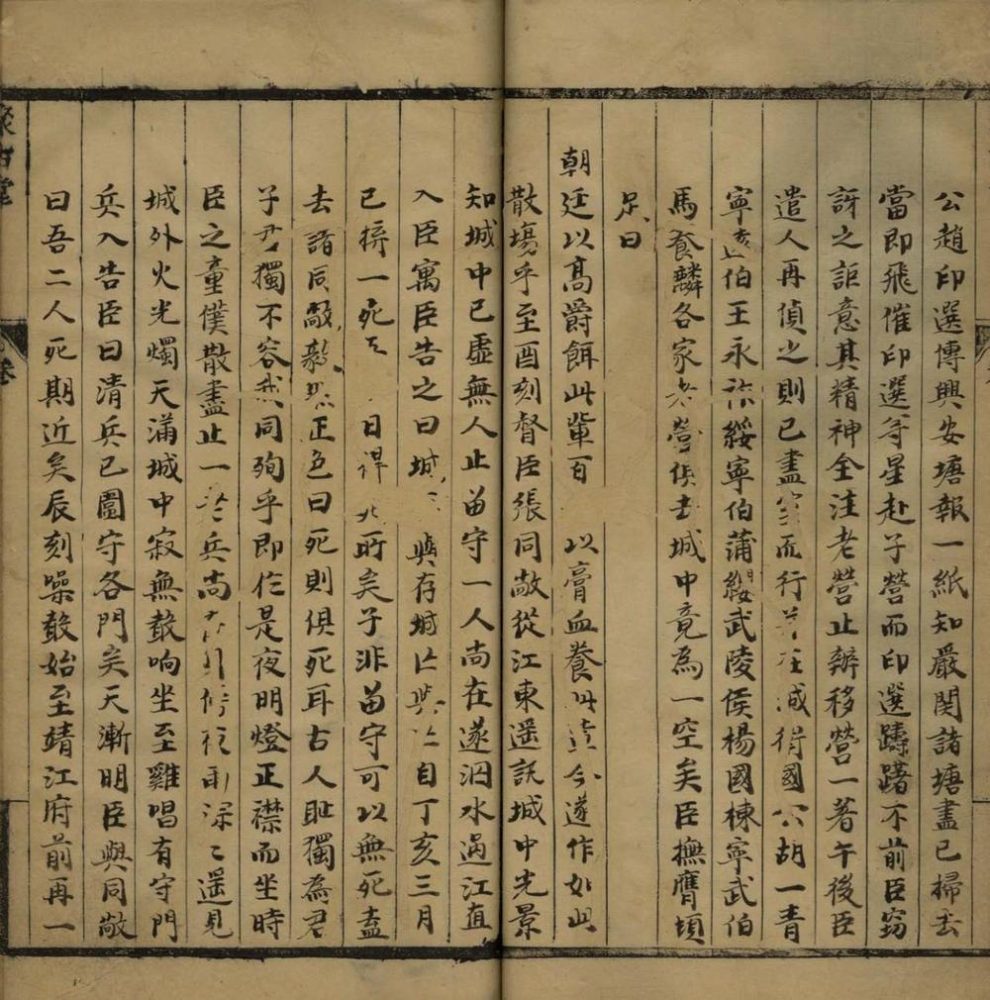 公趙印選傳興安塘報一紙知嚴関諸塘盡已掃去
當即飛催印選等星赴子營而印選躊躇不前臣竊
訝之詎意其精神全注老營止辦移營一著午後臣
遣人再偵之則已盡室而行并在城衛國公胡一青
寧遠伯王永祚綏寧伯蒲纓武陵侯楊國棟寧武伯
馬養麟各家老營俱去城中竟為一空矣臣撫膺頓
足曰
朝廷以髙爵餌此輩百以膏血養此輩今遂作如此
散塲乎至酉刻督臣張同敞從江東遥訊城中光景
知城中已虚無人止畄守一人尚在遂泅水過江直
入臣寓臣告之曰城與存城亡與亡自丁亥三月
已拚一死日得死所矣子非畄守可以無死盍
去諸同敞毅然正色曰死則俱死耳古人耻獨為君
子君獨不容我同殉乎即於是夜明燈正襟而坐時
臣之童僕散盡止一老兵尚夜雨深〻遥見
城外火光燭天滿城中寂無聲响坐至雞唱有守門
兵入告臣曰清兵已圍守各門矣天漸明臣與同敞
曰吾二人死期近矣辰刻噪聲始至靖江府前再一
聚古堂
卷